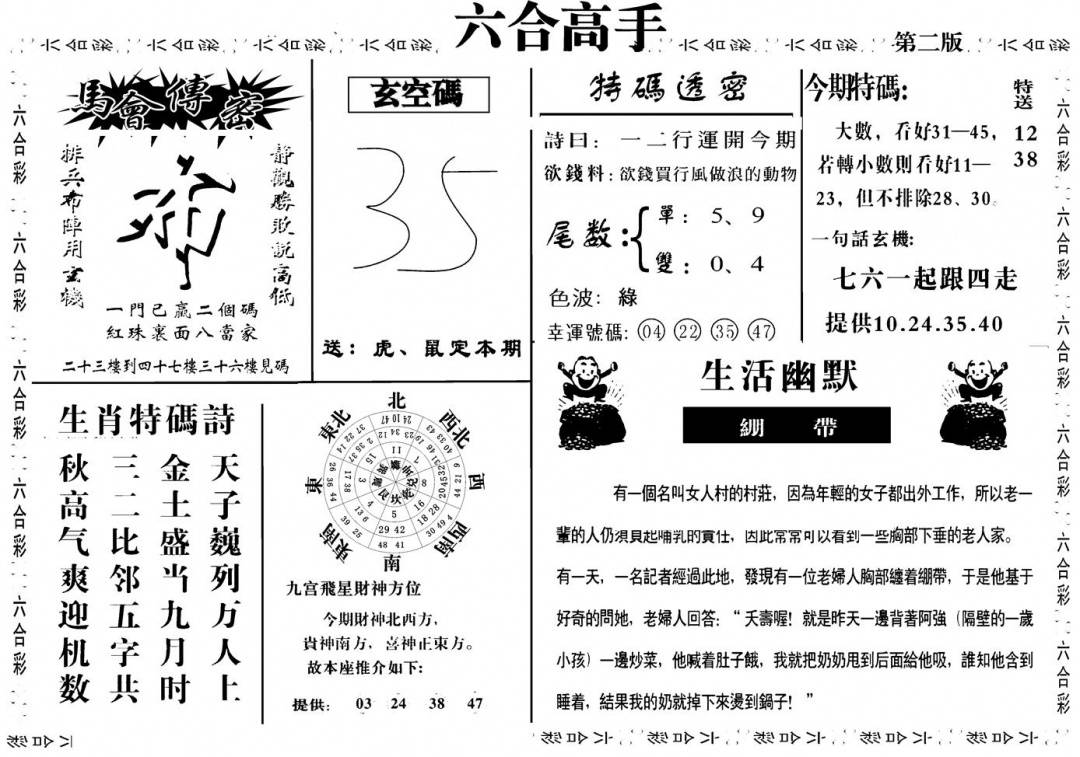 六合高手
第二版
馬會傳密
排兵布陣用玄機
靜觀勝敗説高低
一門已贏二個碼
紅珠裏面八當家
二十三樓到四十七樓三十六樓見碼
玄空碼
35
送：虎、鼠定本期
特碼透密
詩曰：一二行運開今期
欲錢料：欲錢買行風做浪的動物
尾数：
單：5、9
雙：0、4
色波：綠
幸運號碼：04 22 35 47
今期特碼：
大數，看好31—45，
若轉小數則看好11—
23，但不排除28、30。
特送
12
38
一句話玄機：
七六一起跟四走
提供10.24.35.40
生肖特碼詩
天子巍列万人上
金土盛当九月时
三二比邻五字共
秋高气爽迎机数
北
西北
西
西南
南
東南
東
東北
九宫飛星財神方位
今期財神北西方，
貴神南方，喜神正東方。
故本座推介如下：
提供： 03 24 38 47
生活幽默
綳帶
有一個名叫女人村的村莊，因為年輕的女子都出外工作，所以老一
輩的人仍須負起哺乳的責任，因此常常可以看到一些胸部下垂的老人家。
有一天，一名記者經過此地，發現有一位老婦人胸部纏着绷帶，于是他基于
好奇的問她，老婦人回答：“夭壽喔！就是昨天一邊背著阿強（隔壁的一歲
小孩）一邊炒菜，他喊着肚子餓，我就把奶奶甩到后面給他吸，誰知他含到
睡着，結果我的奶就掉下來燙到鍋子！”
六合彩